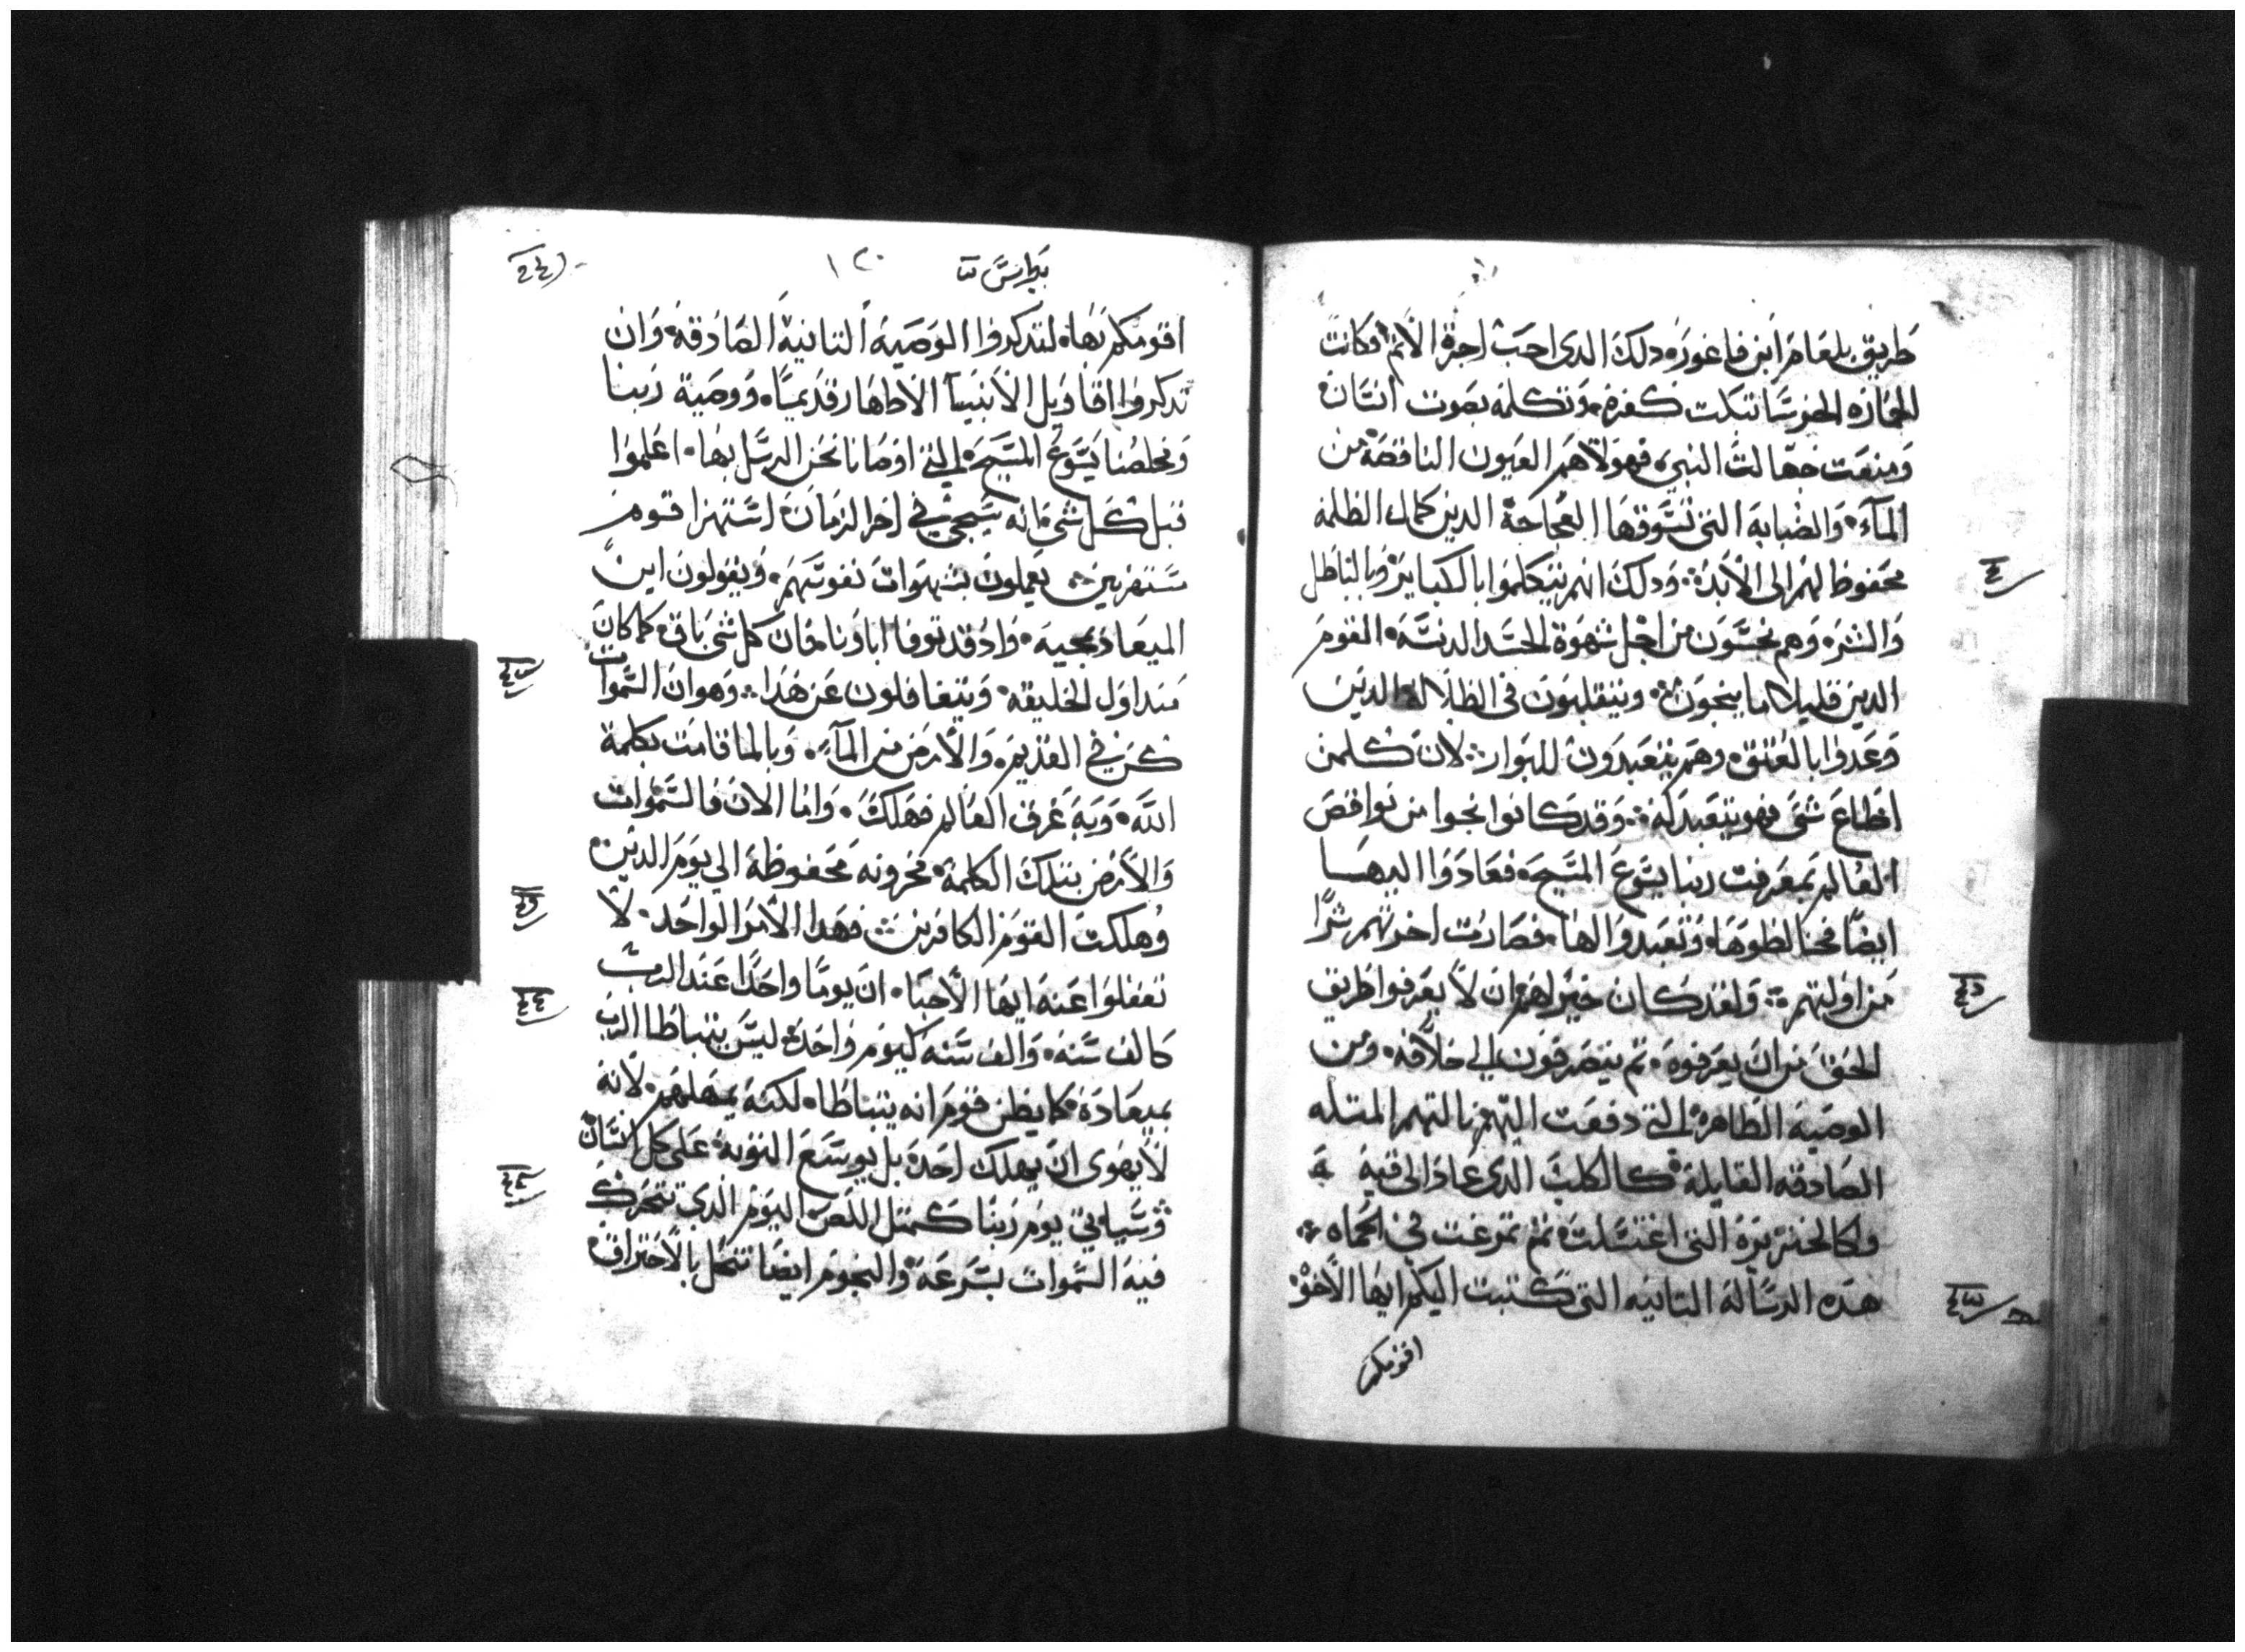 طريق بلعام ابن فاغوره دلك الدى احب اجرة الاثم فكانت
الحماره الخرسا تبكت كفره وتكلمه بصوت انسان
ومنعت جهالت النبي فهولاهم العيون الناقصه من
المآء والضبابه التى تسوقها العجاجة الدين كمال الظلمه
محفوظ لهم الى الابد ودلك انهم يتكلموا بالكباير وبالباطل
والشره وهم نجسون من اجل شهوة الجسد الدنسه القوم
الدين قليلا ما ينجون ويتقلبون فى الظلاله الدين
وعدوا بالعتق وهم يتعبدون للبوار لان كلمن
اطاع شى فهو يتعبد له وقد كانوا نجوا من نواقص
العالم بمعرفت ربنا يسوع المسيح فعادوا اليها
ايضا فخالطوها وتعبدوا لها فصارت اخرتهم شرا
من اولتهم ولقد كان خيرا لهم ان لا يعرفوا طريق
الحق من ان يعرفوه ثم يتصرفون الي خلافه ومن
الوصيه الطاهره التى دفعت اليهم نالتهم المتله
الصادقه القايلة كالكلب الدى عاد الى قيه
وكالخنزيره التى اغتسلت ثم تمرغت في الحماه
هده الرساله التانيه التى كتبت اليكم ايها الاخوه
اقومكم
بطرس
١٢٠
اقومكم بها لتدكروا الوصية التانية الصادقه وان
تدكروا اقاويل الانبيآ الاطهار قديما ووصية ربنا
ومخلصنا يسوع المسيح التى اوصانا نحن الرسل بها اعلموا
قبل كل شى انه سيجي في اخر الزمان استهزا قوم
مستهزيين يعملون بشهوات نفوسهم ويقولون اين
الميعاد بمجيه واد قد توفا اباونا فان كل شى باق كما كان
مند اول الخليقه ويتغافلون عن هدا وهو ان السموات
كن في القديم والارض من المآء وبالما قامت بكلمة
الله وبه غرق العالم فهلك واما الان فالسموات
والارض بتلك الكلمة مخزونه محفوظة الي يوم الدين
وهلكت القوم الكافرين فهدا الامر الواحد لا
تغفلوا عنه ايها الاحبا ان يوما واحدا عند الرب
كالف سنه والف سنه كيوم واحد ليس يتباطا الرب
بميعاده كما يظن قوم انه يتباطا لكنه يمهلهم لانه
لا يهوى ان يهلك احد بل يوسع التوبه على كل انسان
وسياتي يوم ربنا كمتل اللص اليوم الدي تتحرك
فيه السموات بسرعة والنجوم ايضا تنحل بالاحتراق